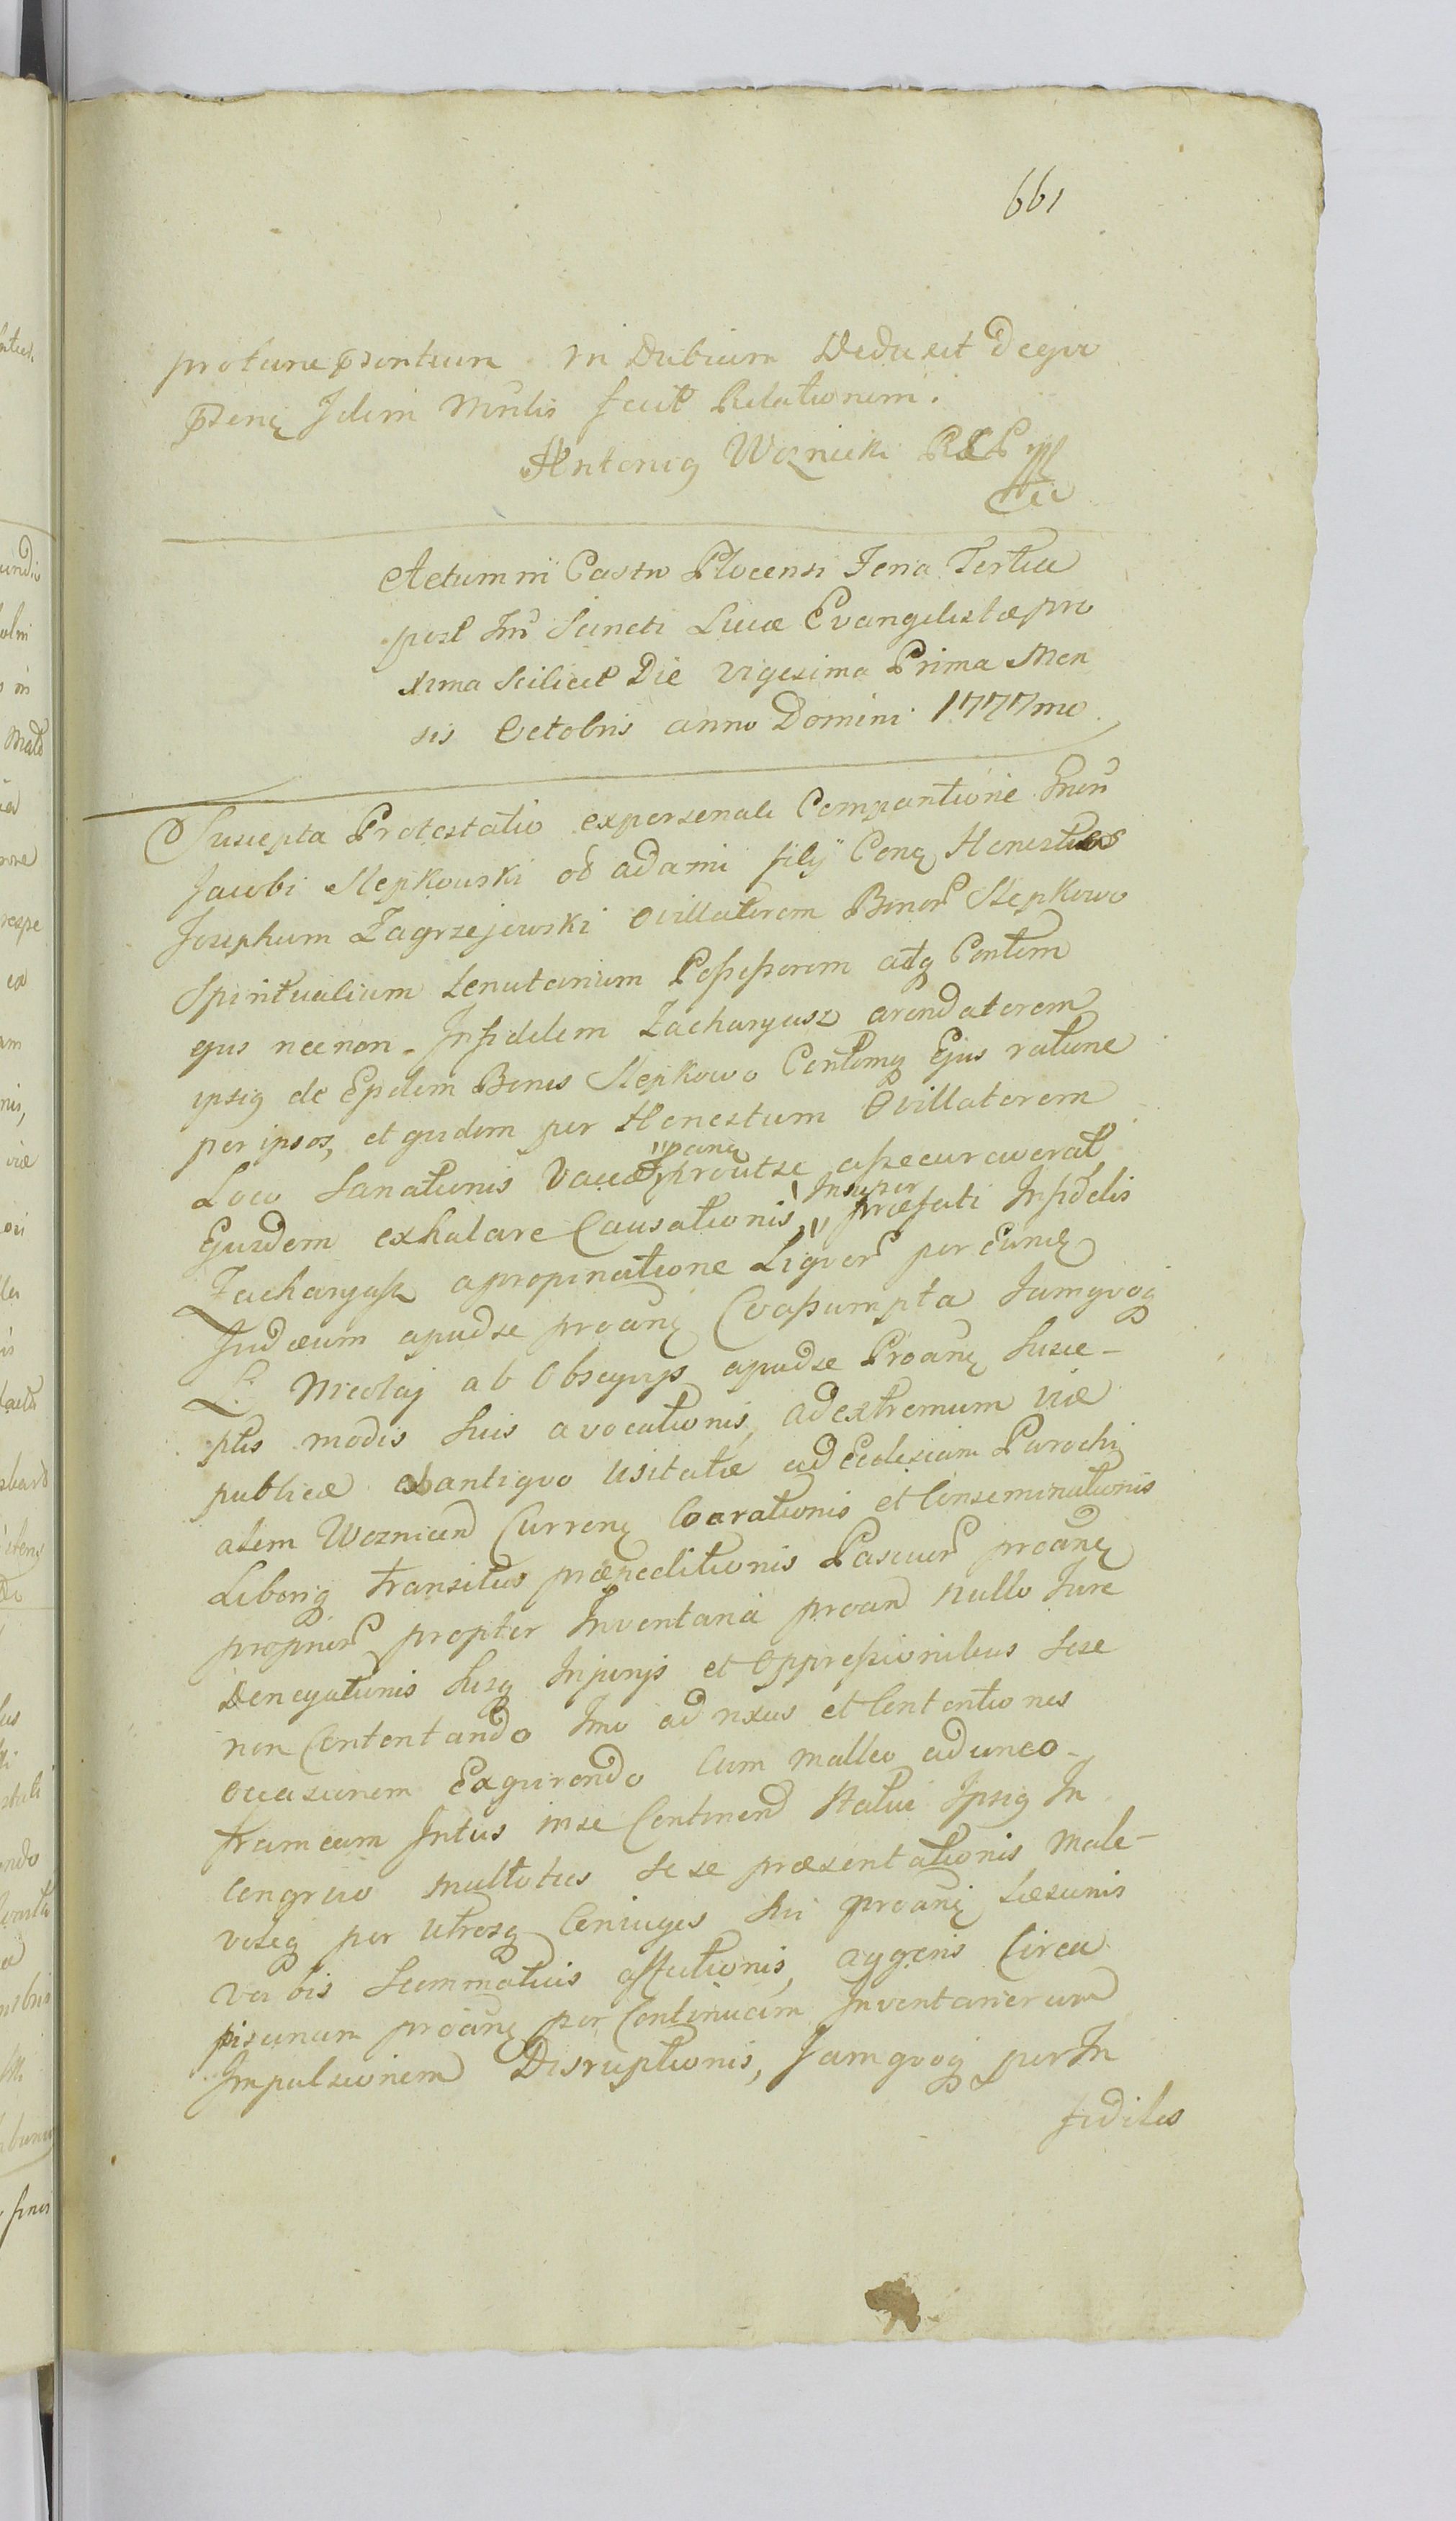 661
protunc psentium in Dubium Deduxit Deqve
psentq Idem Mnlis fecit Relationem.
Antoniq Woznicki RCP mpp
Actum in Castro Plocensi Feria Tertia
post Fm Sancti Lucæ Evangelistæ pro
xima scilicet Die vigesima Prima Men
sis Octobris anno Domini 1777mo.
Suscepta Protestatio expersonali Comparitione Gnsi
Jacobi Slepkowski ol adami filij Conq Honestum
Josephum Zagrzejewski Ovillatorem Bonor Slepkowo
Spiritualium tenutarium Poßeßorem atq Contem
ejus necnon Infidelem Zacharyasz arendatorem
ipsiq de Eysdem Bonis Slepkowo Contemq Ejus ratione
per ipsos, et quidem per Honestum Ovillatorem
Loco Sanationis Vaccæ panq proutse aßecuraverat
Ejusdem exhalare Causationis, Insuper præfati Infidelis
Zacharyaß apropinatione Liqvor per eunq
Judæum apudse proanq Coaßumpta Jamqvoq
L: Nicolaj ab Obseqvys apudse Proanq Susce-
ptis modis suis avocationis, adextremum viæ
publicæ abantiqvo Usitatæ ad Ecclesiam Parochi
alem Woznicen Currenq Coarationis et Conseminationis
Liboriq transitus præpeditionis Pascuor proanq
proprior propter Inventaria proan nullo Jure
Denegationis hisq Injurijs et Oppreßionibus Sese
non Contentando Imo ad rixas et Contentiones
occasionem Exquirendo Cum malleo adunco-
frameam Intus inse Continen Statui Ipsiq In
congruo multoties sese præsentationis, male-
voleq per Utrosq Coniuges hi proanq Læsionis
Verbis Scommaticis affectionis, aggeris Circa
piscinam proanq per Continuam Inventariorum
Impulsionem Disruptionis, Jamqvoq per In
fideles